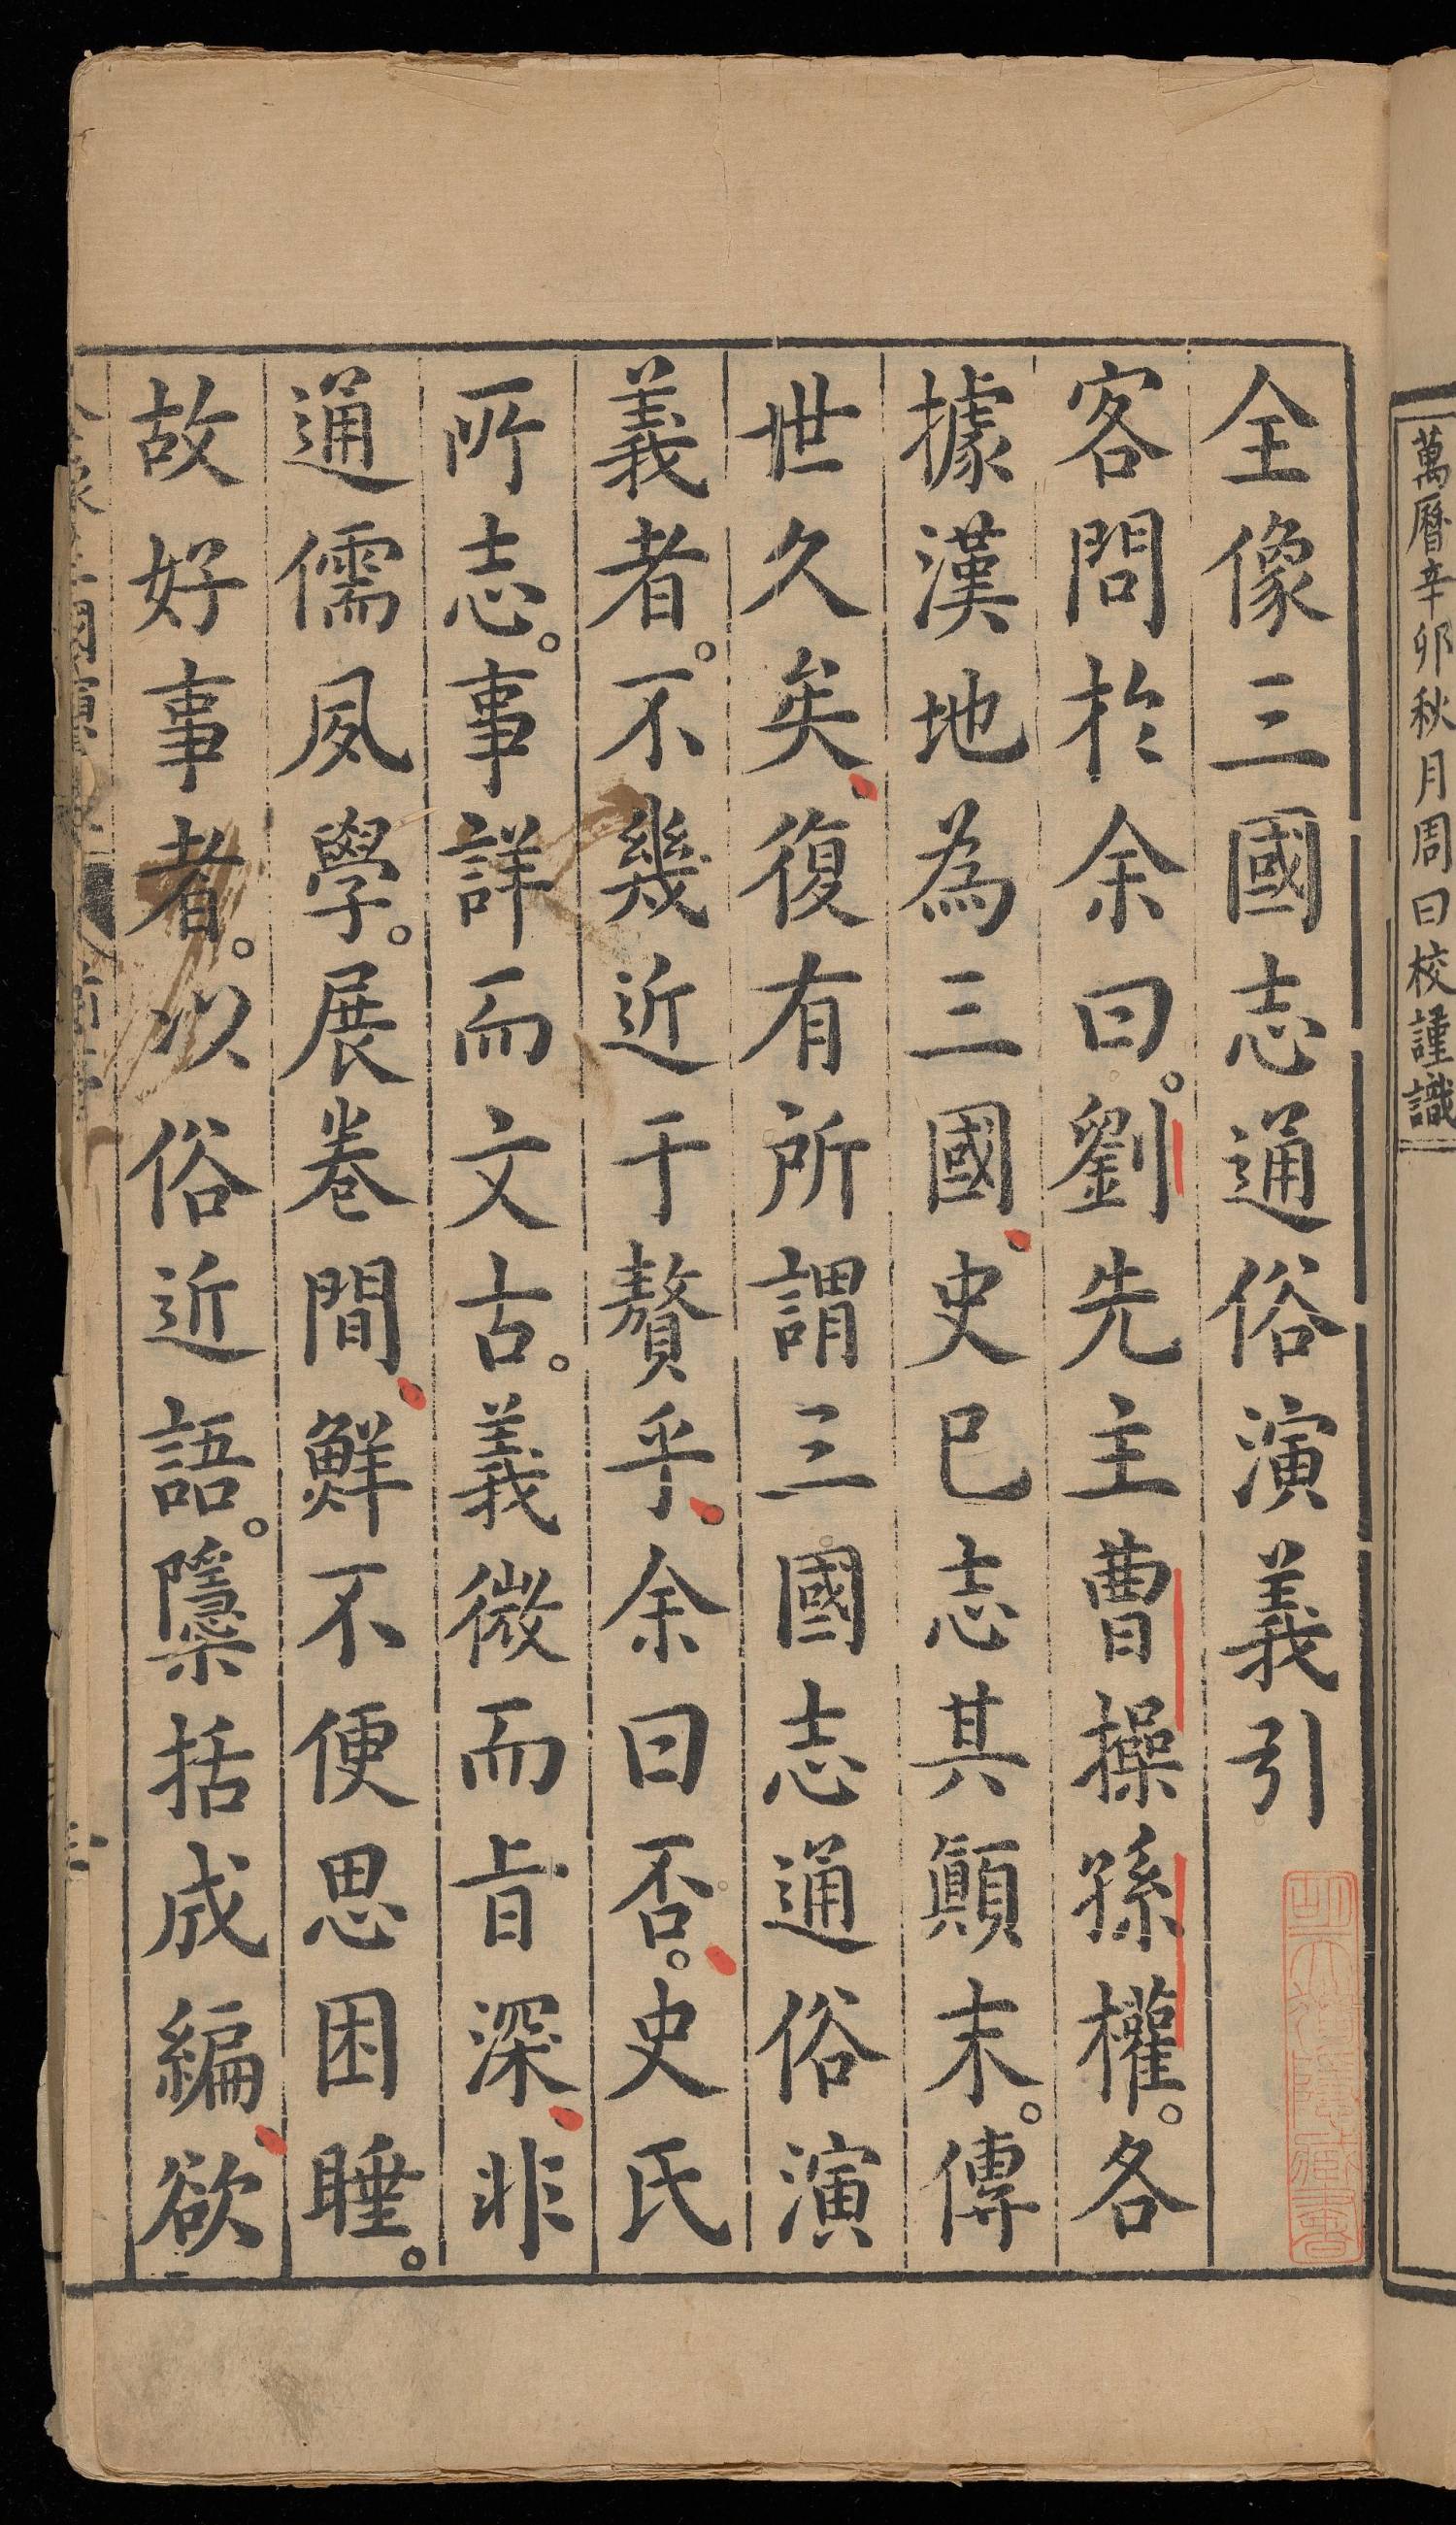 萬曆辛卯秋月周曰校謹識
全像三國志通俗演義引
客問於余曰。劉先主曹操孫權。各
據漢地為三國史已志其顛末。傳
世久矣復有所謂三國志通俗演
義者。不幾近于贅乎余曰否。史氏
所志。事詳而文古。義微而旨深非
通儒夙學。展卷間鮮不便思困睡。
故好事者。以俗近語。隱括成編欲